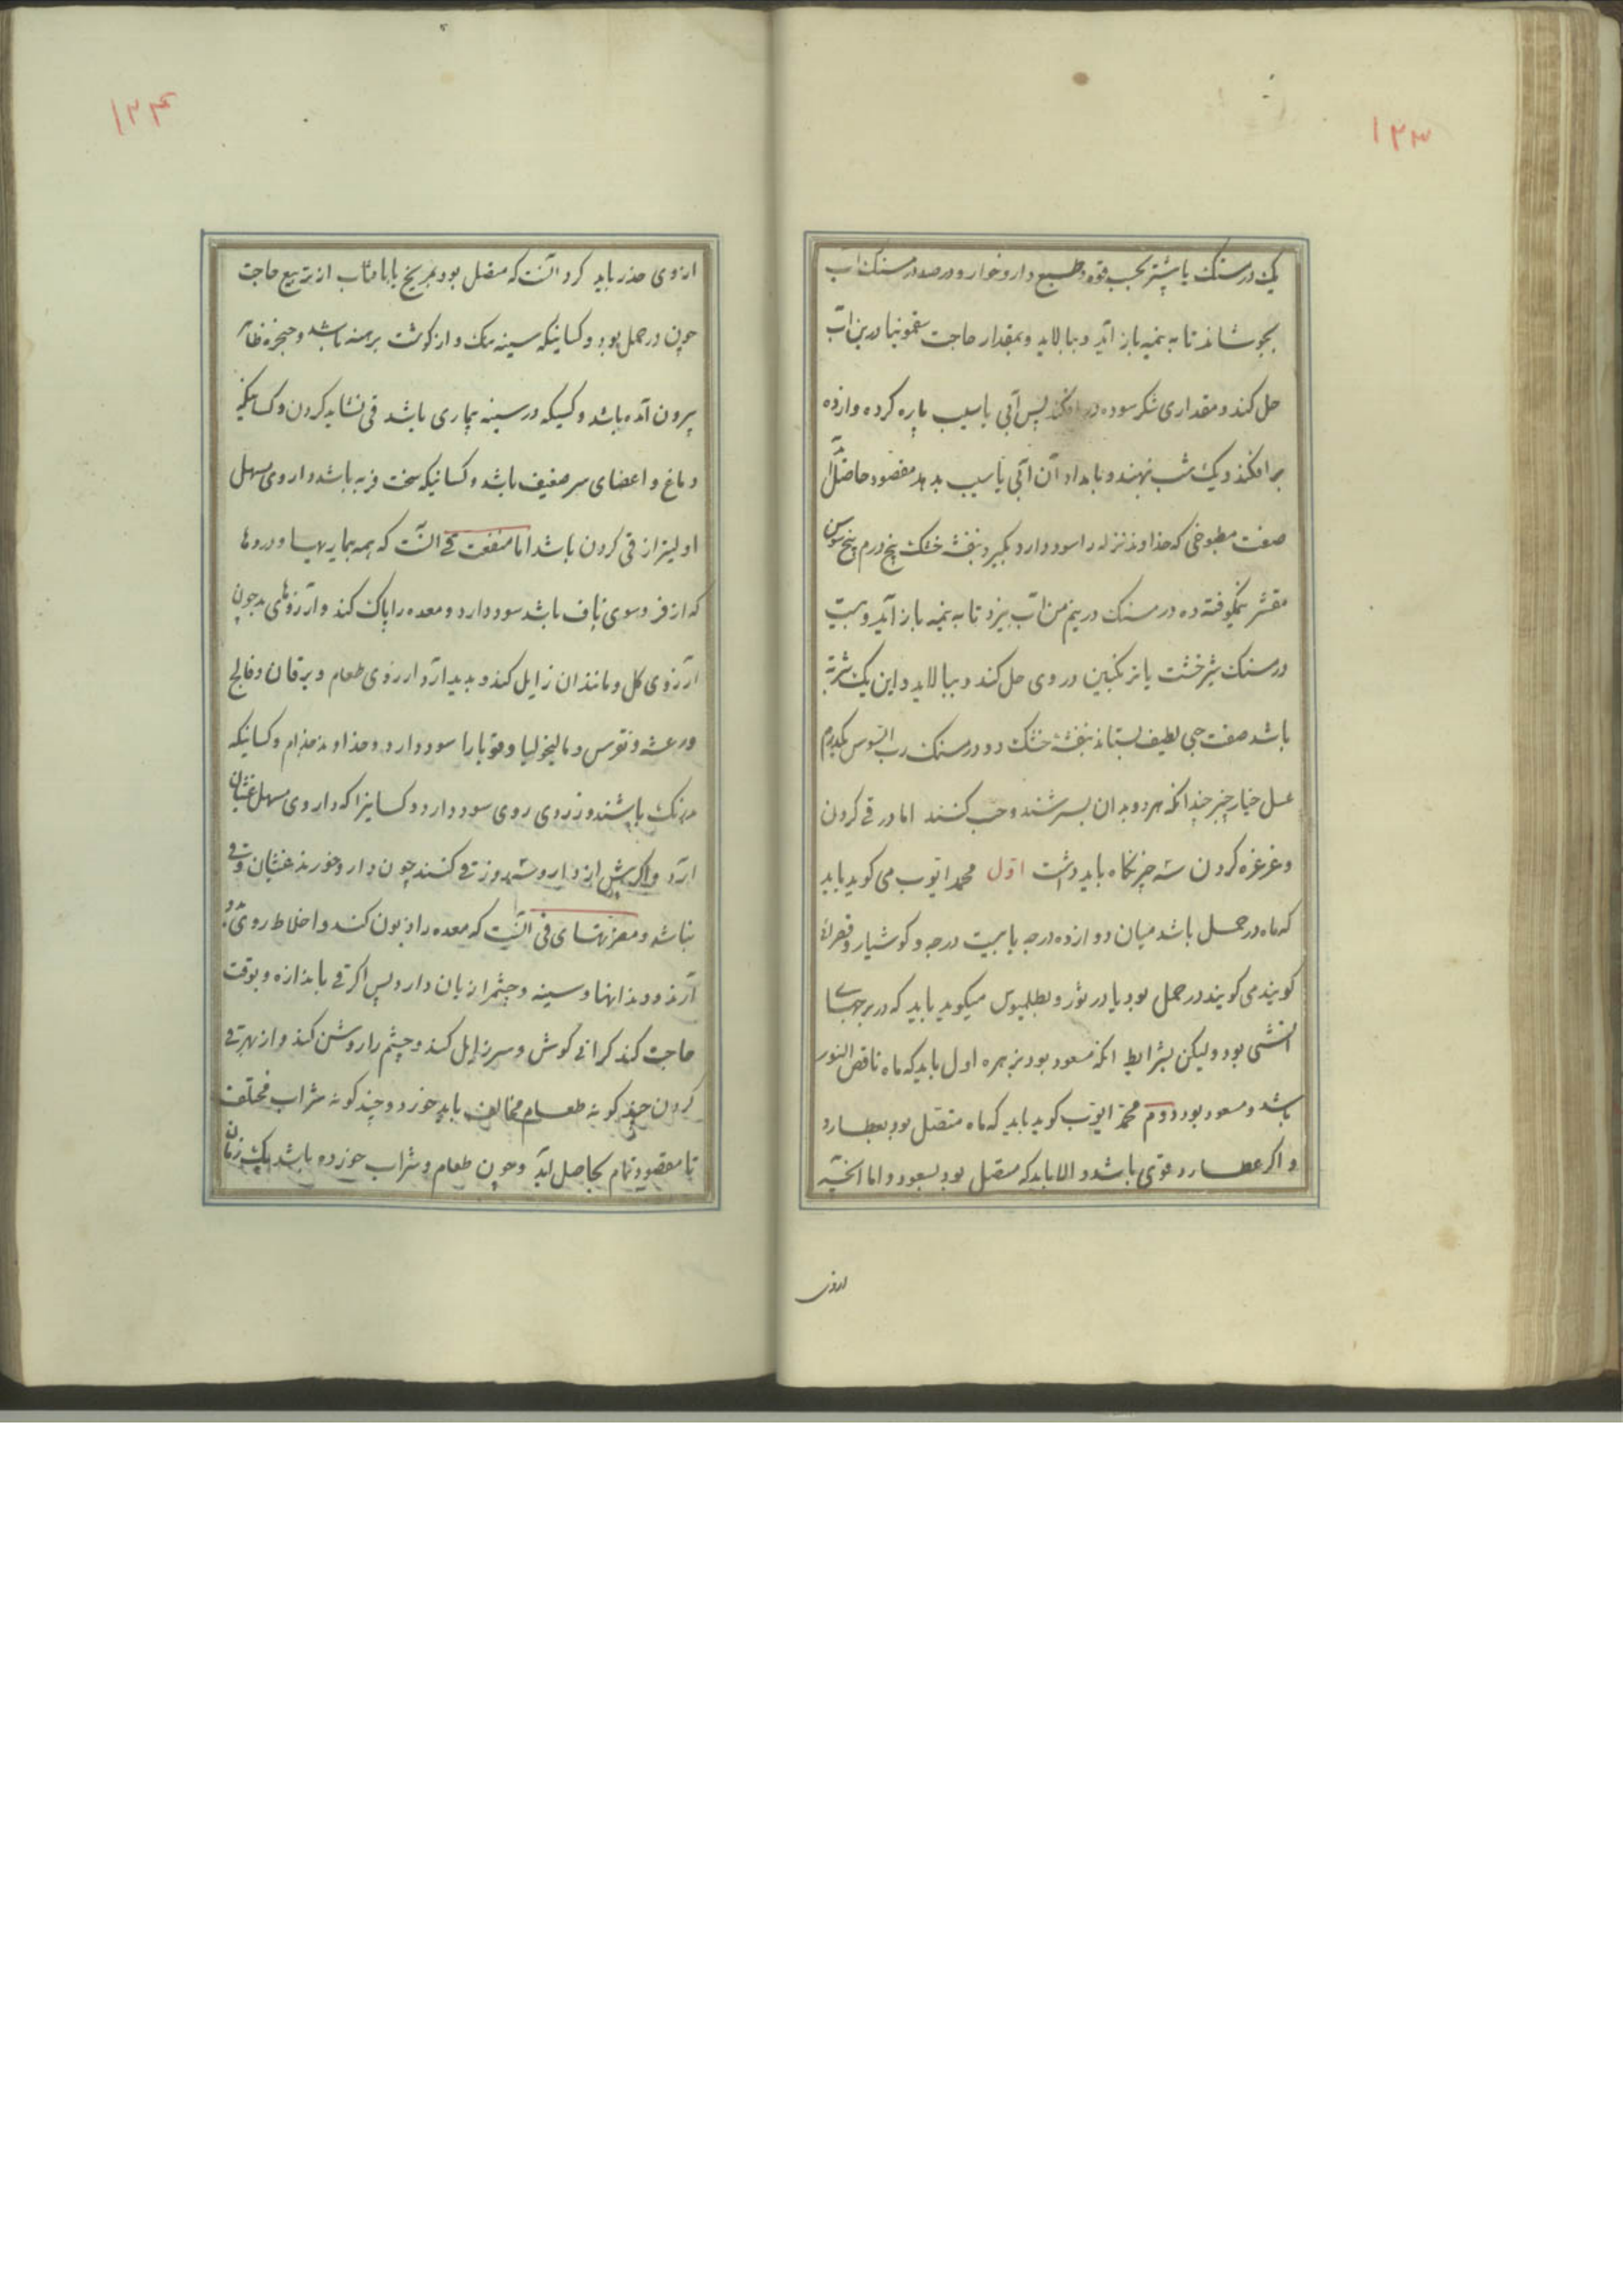 ۱۲۳
یک درمسنک یا بیشتر بحسب قوه و طبع دارو خوار و در صد درمسنک اب
بجوشاند تا به نیمه باز آید و بپالاید و بمقدار حاجت سقمونیا درین اب
حل کند و مقداری شکر سوده در افکند پس آبی یا سیب پاره کرده و ازده
برافکند و یک شب بنهند و بامداد آن آبی یا سیب بدهد مقصود حاصل آید
صفت مطبوخی که خداوند نزله را سود دارد بکیرد بنفشه خشک پنج درم بیخ سوس
مقشر نیمکوفته ده درمسنک در نیم من اب بپزد تا به نیمه باز آید و بیست
درمسنک شیرخشت یا ترنکبین در وی حل کند و بپالاید و این یک شربة
باشد صفت حبی لطیف بستاند بنفشه خشک دو درمسنک رب السوس یکدرم
عسل خیار چنبر چندانکه هر دو بدان بسرشند و حب کنند اما در قی کردن
و غرغره کردن سه چیز نکاه باید داشت اول محمد ایوب می کوید باید
که ماه در حمل باشد میان دوازده درجه یا بیست درجه و کوشیار و قصرانی
کویند می کویند در حمل بود یا در ثور و بطلمیوس میکوید باید که در برجهای
انثی بود ولیکن بشرایط انکه مسعود بود بزهره اول باید که ماه ناقص النور
باشد و مسعود بود دوم محمد ایوب کوید باید که ماه متصل بود بعطارد
و اکر عطارد قوی باشد و الا باید که متصل بود بسعود و اما انچه
ازوی
۱۲۴
ازوی حذر باید کرد آنست که متصل بود بمریخ یا بافتاب از تربیع خاصه
چون در حمل بود و کسانیکه سینه تنک و از کوشت برهنه باشد و حنجره ظاهر
بیرون آمده باشد و کسیکه در سینه بیماری باشد قی نشاید کردن و کسانیکه
دماغ و اعضای سر ضعیف باشد و کسانیکه سخت فربه باشد داروی مسهل
اولیتر از قی کردن باشد اما منفعت قی آنست که همه بیماریها و دردها
که از فروسوی ناف باشد سود دارد و معده را پاک کند و آرزوهای بد چون
آرزوی کل و مانند ان زایل کند و بدید آرد ارزوی طعام و یرقان و فالج
ورعشه و نقرس و مالیخولیا و قوبا را سود دارد و خداوند جذام و کسانیکه
باشند و زردی روی سود دارد و کسانیرا که داروی مسهل غثیان
ارد و اکر پیش از دارو سه روز قی کنند چون دارو خورند غثیان و قی
نباشد و مضرتهای قی آنست که معده را زبون کند و اخلاط روی بدو
آرند و دندانها و سینه و چشم را زیان دارد پس اکر قی باندازه و بوقت
حاجت کند کرانی کوش و سر زایل کند و چشم را روشن کند و از بهر قی
کردن چند کونه طعام مخالف باید خورد و چند کونه شراب مختلف
تا مقصود تمام بحاصل آید و چون طعام و شراب خورده باشد یک زمان